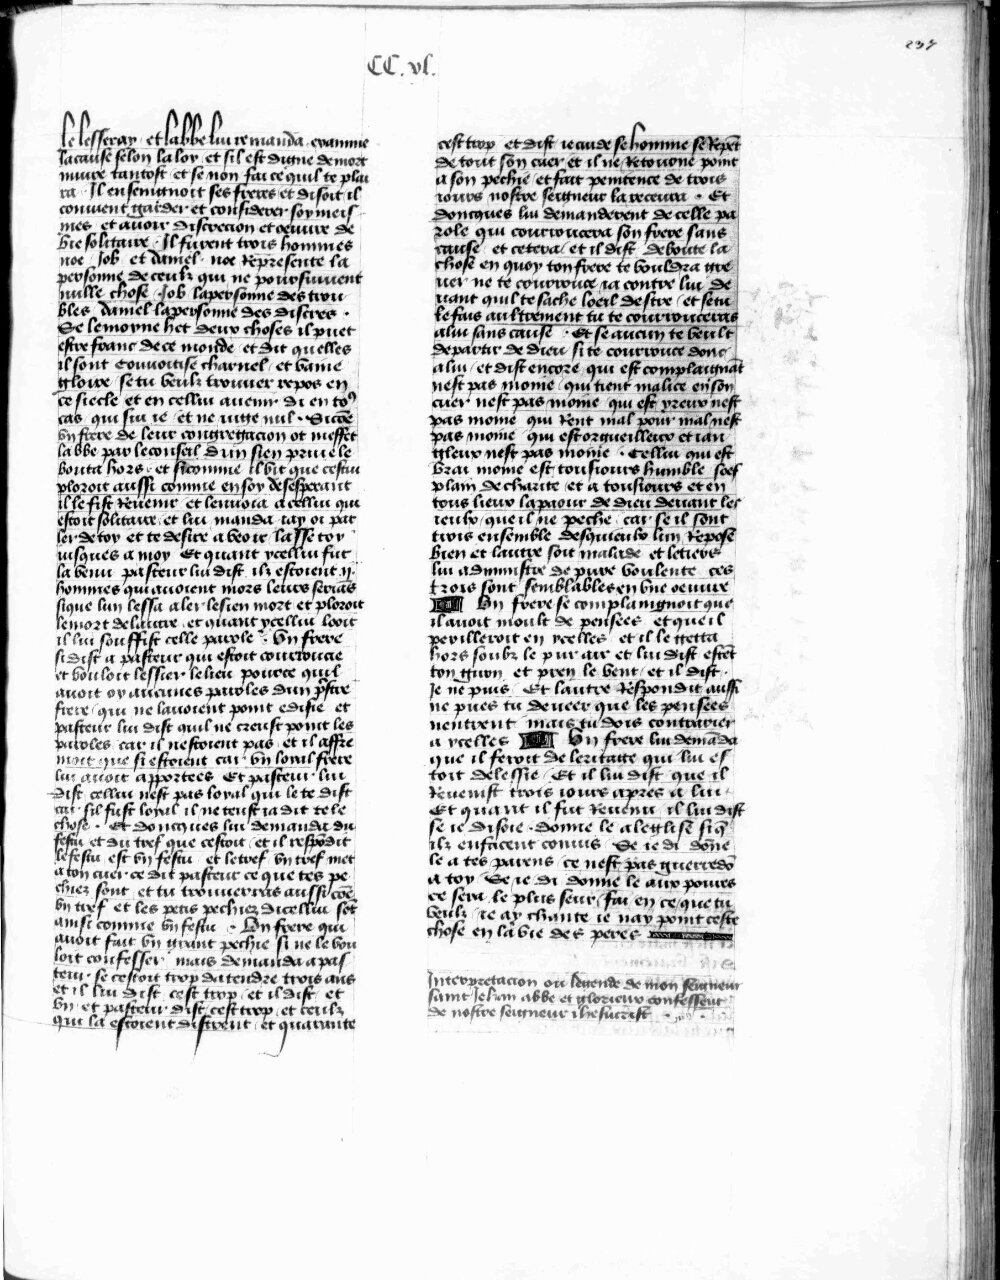 237
CC.vl.
le lesseray et labbe lui remanda examine
la cause selon la loy et sil est digne de mort
muire tantost et se non fai ce quil te plai
ra . Il ensaignoit ses freres et disoit il
convient garder et considerer soy meis
mes et avoir discrecion et oeuvre de
vie solitaire . Il furent trois hommes
noe Job et daniel . noe Represente la
personne de ceulx qui ne poursuivent
nulle chose Job la personne des trou
bles daniel la personne des discres .
Se le moyne het deux choses il puet
estre franc de ce monde et dit quelles
il sont couvoitise charnel et vaine
gloire se tu veulz trouver repos en
ce siecle et en cellui avenir di en toꝯ
cas qui sui ie et ne iuge nul . Sicōe
vn frere de leur congregacion ot meffet
labbe par le conseil dun sien prive le
bouta hors et si comme il vit que cestui
ploroit aussi comme en soy desesperant
il le fist Revenir et lenvoia a cellui qui
estoit solitaire et lui manda iay oi par
ler de toy et te desire a veoir lasse toy
iusques a moy Et quant ycellui fut
la venu pasteur lui dist ilz estoient ij.
hommes qui avoient mors leurs servās
si que lun lessa aler le sien mort et ploroit
le mort de lautre et quant ycellui looit
il lui souffist celle parole . Vn frere
si dist a pasteur qui estoit courroucie
et vouloit lessier le lieu pource quil
avoit oy aucunes paroles dun p̄stre
frere qui ne lavoient point edifie et
pasteur lui dist quil ne creust point les
paroles car il nestoient pas et il affre
moit que si estoient car vn loial frere
lui avoit apportees Et pasteur lui
dist cellui nest pas loyal qui le te dist
car sil fust loyal il ne teust ia dit tele
chose . Et doncques lui demanda du
festu et du tref que cestoit et il respōdit
le festu est vn festu et le tref vn tref met
a ton cuer ce dit pasteur ce que tes pe
chiez sont et tu trouveras aussi cōe
vn tref et les petis pechiez dicellui sōt
ainsi comme vn festu . Vn frere qui
avoit fait vn grant pechie si ne le vou
loit confesser mais demanda a pas
teur se cestoit trop datendre trois ans
et il lui dist cest trop et il dist et
vn et pasteur dist cest trop et ceulz
qui la estoient distrent et quarante
cest trop et dist ie cude se homme se Repēt
de tout son cuer et il ne Retourne point
a son pechie et fait penitence de trois
iours nostre seigneur la recevra . Et
doncques lui demanderent de celle pa
role qui courroucera son frere sans
cause et cetera et il dist de toute la
chose en quoy ton frere te vouldra gre
ver ne te courrouce ia contre lui de
vant quil te sache loeil destre et se tu
le fais aultrement tu te courrouceras
a lui sans cause . Et se aucun te veult
departir de dieu si te courrouce donc
a lui et dist encore qui est complaignāt
nest pas moine qui tient malice en son
cuer nest pas moine qui est yreux nest
pas moine qui Rent mal pour mal nest
pas moine qui est orgueilleux et ian
gleux nest pas moine . Cellui qui est
vrai moine est tousiours humble soef
plain de charite et a tousiours et en
tous lieux la paour de dieu devant les
ieulx que il ne peche car se il sont
trois ensemble desquieulx lun Repose
bien et lautre soit malade et le tiers
lui administre de pure voulente ces
trois sont semblables en vne oeuvre
Vn frere se complaingnoit que
il avoit moult de pensees et que il
perilleroit en ycelles et il le getta
hors soubz le pur air et lui dist estēt
ton giron et pren le vent et il dist
Je ne puis Et lautre Respondit aussi
ne pues tu deveer que les pensees
nentrent mais tu dois contrarier
a ycelles Vn frere lui demāda
que il feroit de leritage qui lui es
toit delessie Et il lui dist que il
Revenist trois iours apres a lui
Et quant il fut Revenu il lui dist
se ie disoie donne le a leglise si q̄
ilz enfacent convis Se ie di dōne
le a tes parens ce nest pas guerredō
a toy Se ie di donne le aux povres
ce sera le plus seur fai en ce que tu
veulz ie ay chante ie nay point ceste
chose en la vie des peres
Interpretacion ou legende de mon seigneur
saint Jehan abbe et glorieux confesseur
de nostre seigneur ihesucrist